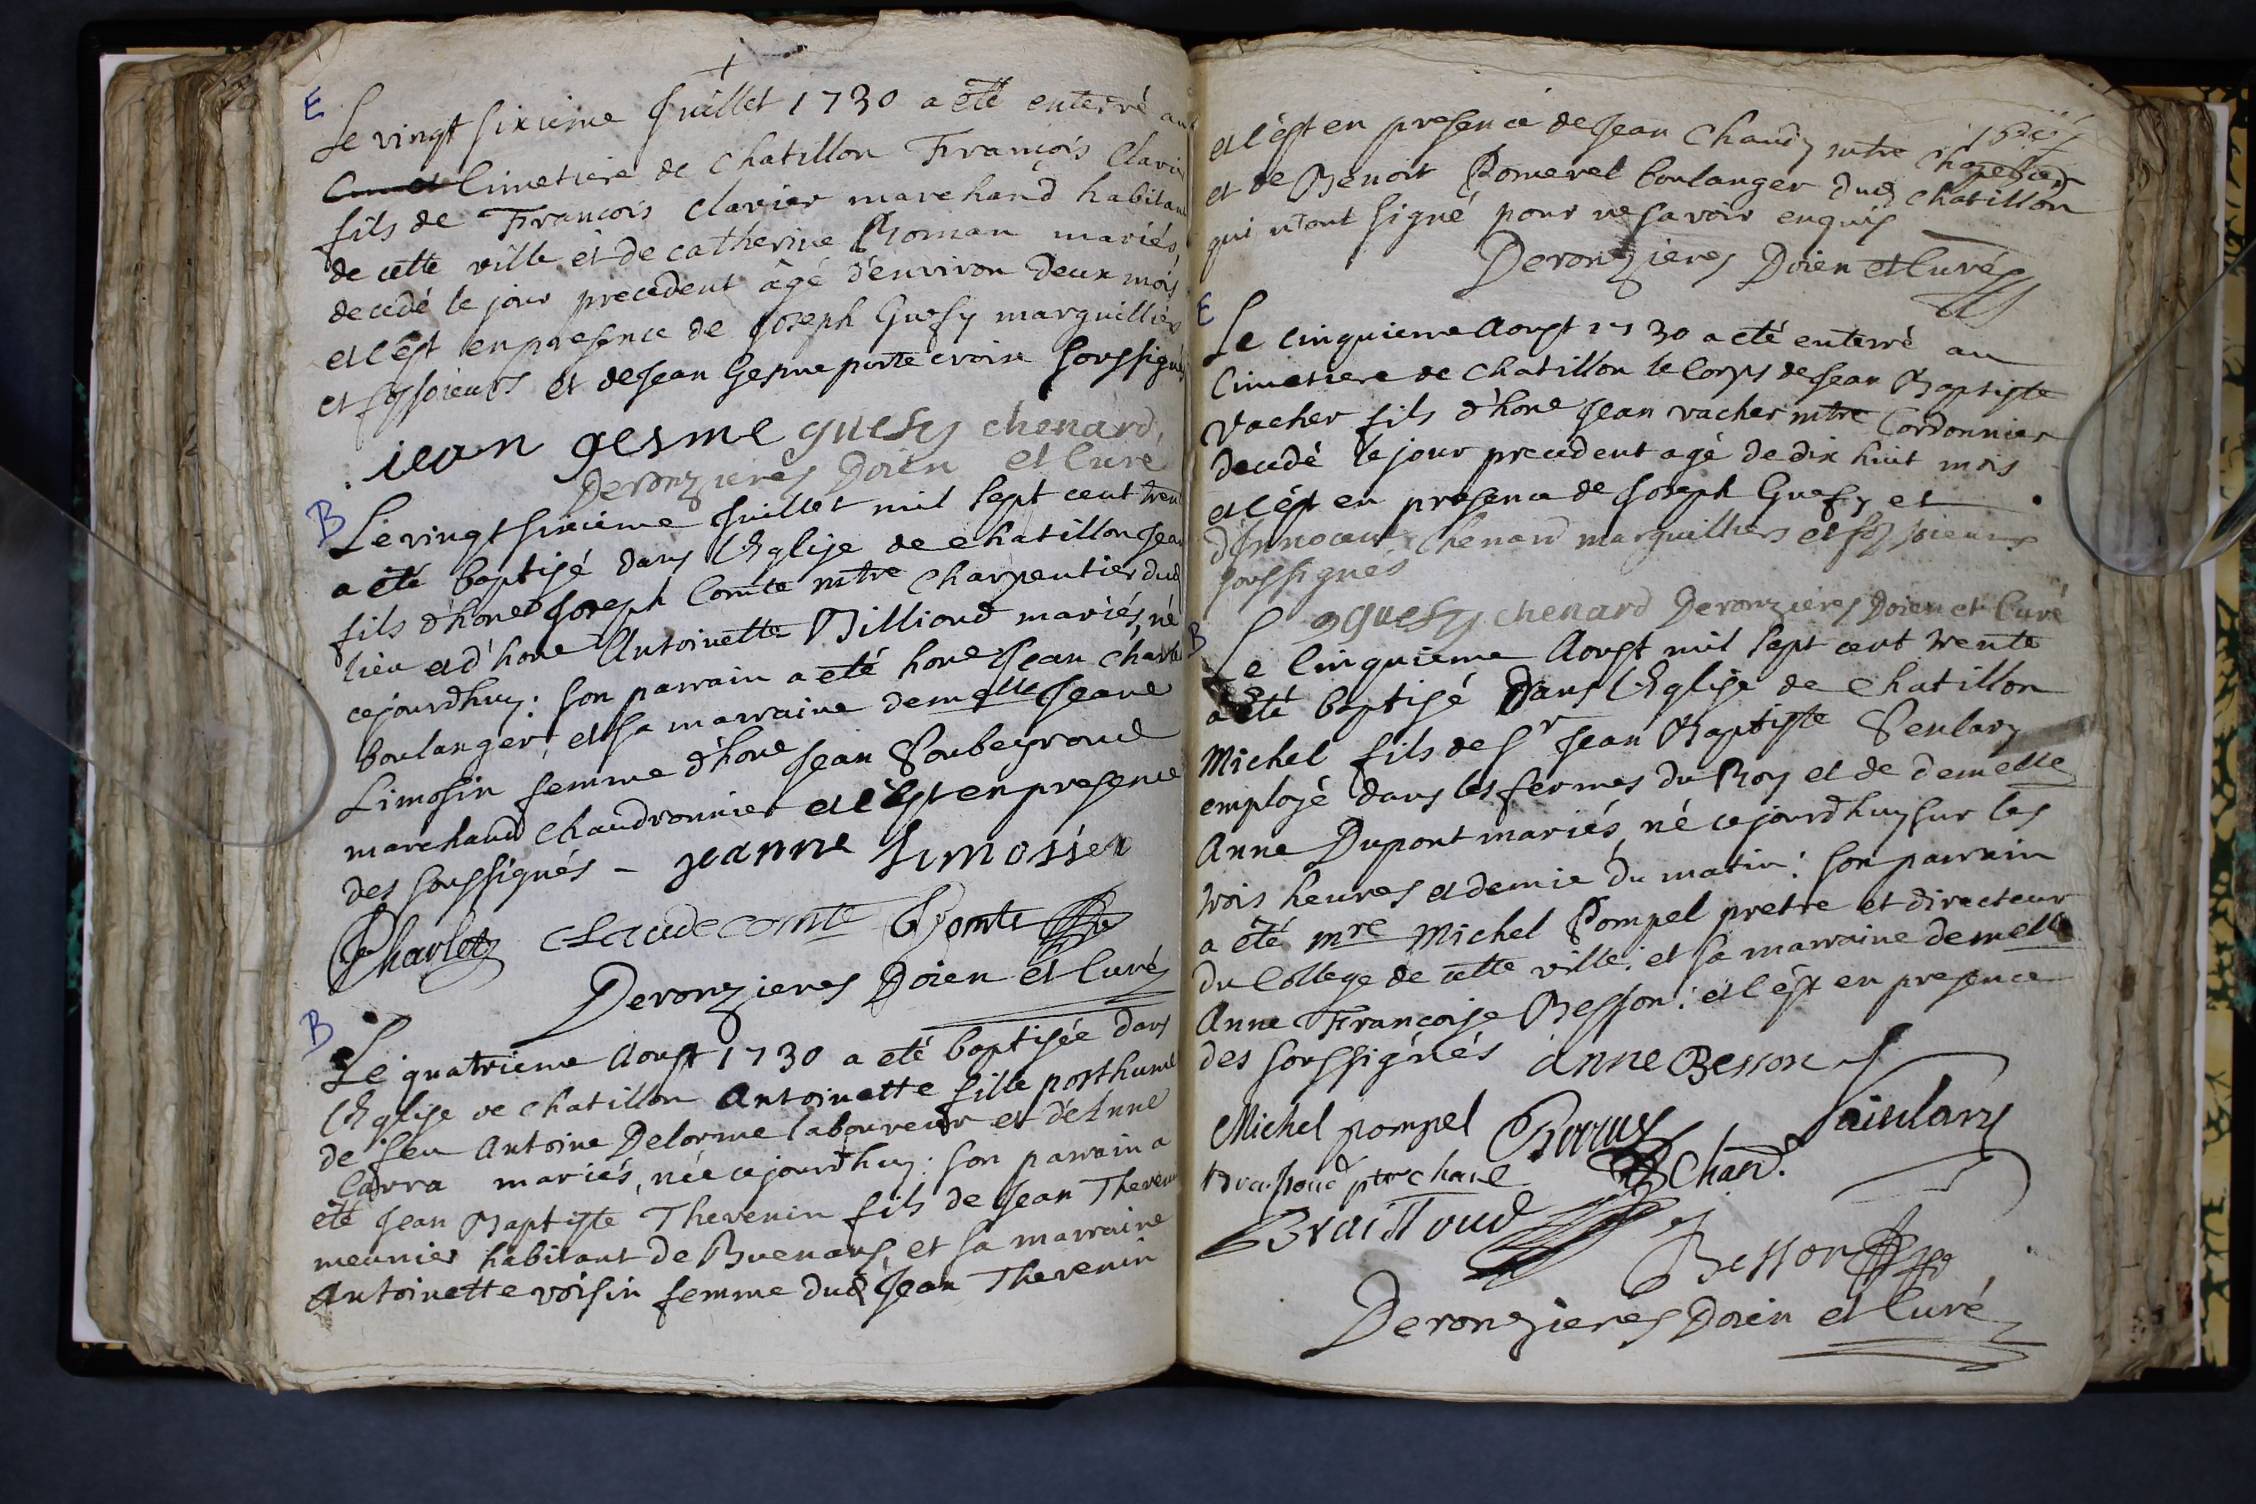 E
Le vingt sixieme Juillet 1730 a été enterré au
Cimetiere de Chatillon François Clavie
fils de François Clavier marchand habitant
de cette ville et de catherine Roman mariés,
decedé le jour precedent âgé d'environ deux mois
et c'est en presence de Joseph Guesy marguillier
et fossoieurs et de Jean Gesme porte croix soussignés
jean gesme guesy chenard,
Deronzieres Doien et Curé
B
Le vingt sixieme Juillet mil sept cent tren
a été baptisé dans l'Eglise de chatillon Jean
fils d'hone Joseph Comte mtre charpentier dud
lieu et d'hone Antoinette Billioud mariés, né
cejourdhuy: son parrain a été hone Jean Charle
boulanger, et sa marraine demelle Jeane
Limosin femme d'hone Jean Soubeyroud
marchand chaudronnier et c'est en presence
des soussignés - jeanne Limosien
Charlet claude comte Comte
Deronzieres Doien et Curé
B
Le quatrieme Aoust 1730 a eté baptisée dans
l'Eglise de chatillon Antoinette fille posthume
de feu Antoine Delorme laboureur et d'Anne
Carra mariés, née cejourdhuy: son parrain a
été Jean Baptiste Thevenin fils de Jean Theven
meunier habitant de Buenans et sa marraine
Antoinette voisin femme dud Jean Thevenin
et c'est en presence de Jean Chaud mtre
et de Benoit Pomerel boulanger dud Chatillon
qui n'ont signé pour ne savoir enquis
Deronzieres Doien et Curé
E
Le cinquieme Aoust 1730 a été enterré au
Cimetiere de Chatillon le Corps de Jean Baptiste
Vacher fils d'hone Jean vacher mtre Cordonnier
decedé le jour precedent agé de dix huit mois
et c'est en presence de Joseph Guesy et
d'Innocent Chenard marguilliers et fossoieurs
soussignés
guesy chenard Deronzieres Doien et Curé
B
Le Cinquieme Aoust mil sept cent trente
a été baptisé dans l'Eglise de Chatillon
Michel fils de Sr Jean Baptiste Senlary
employé dans les fermes du Roy et de demelle
Anne Dupont mariés, né cejourdhuy sur les
trois heures et demie du matin: son parrain
a été mre Michel Pompel pretre et directeur
du College de cette ville: et sa marraine demelle
Anne Françoise Besson: et c'est en presence
des soussignés anne Besson
Michel pompel Sainlary
Chan.
Braissoud
Besson
Deronzieres Doien et Curé